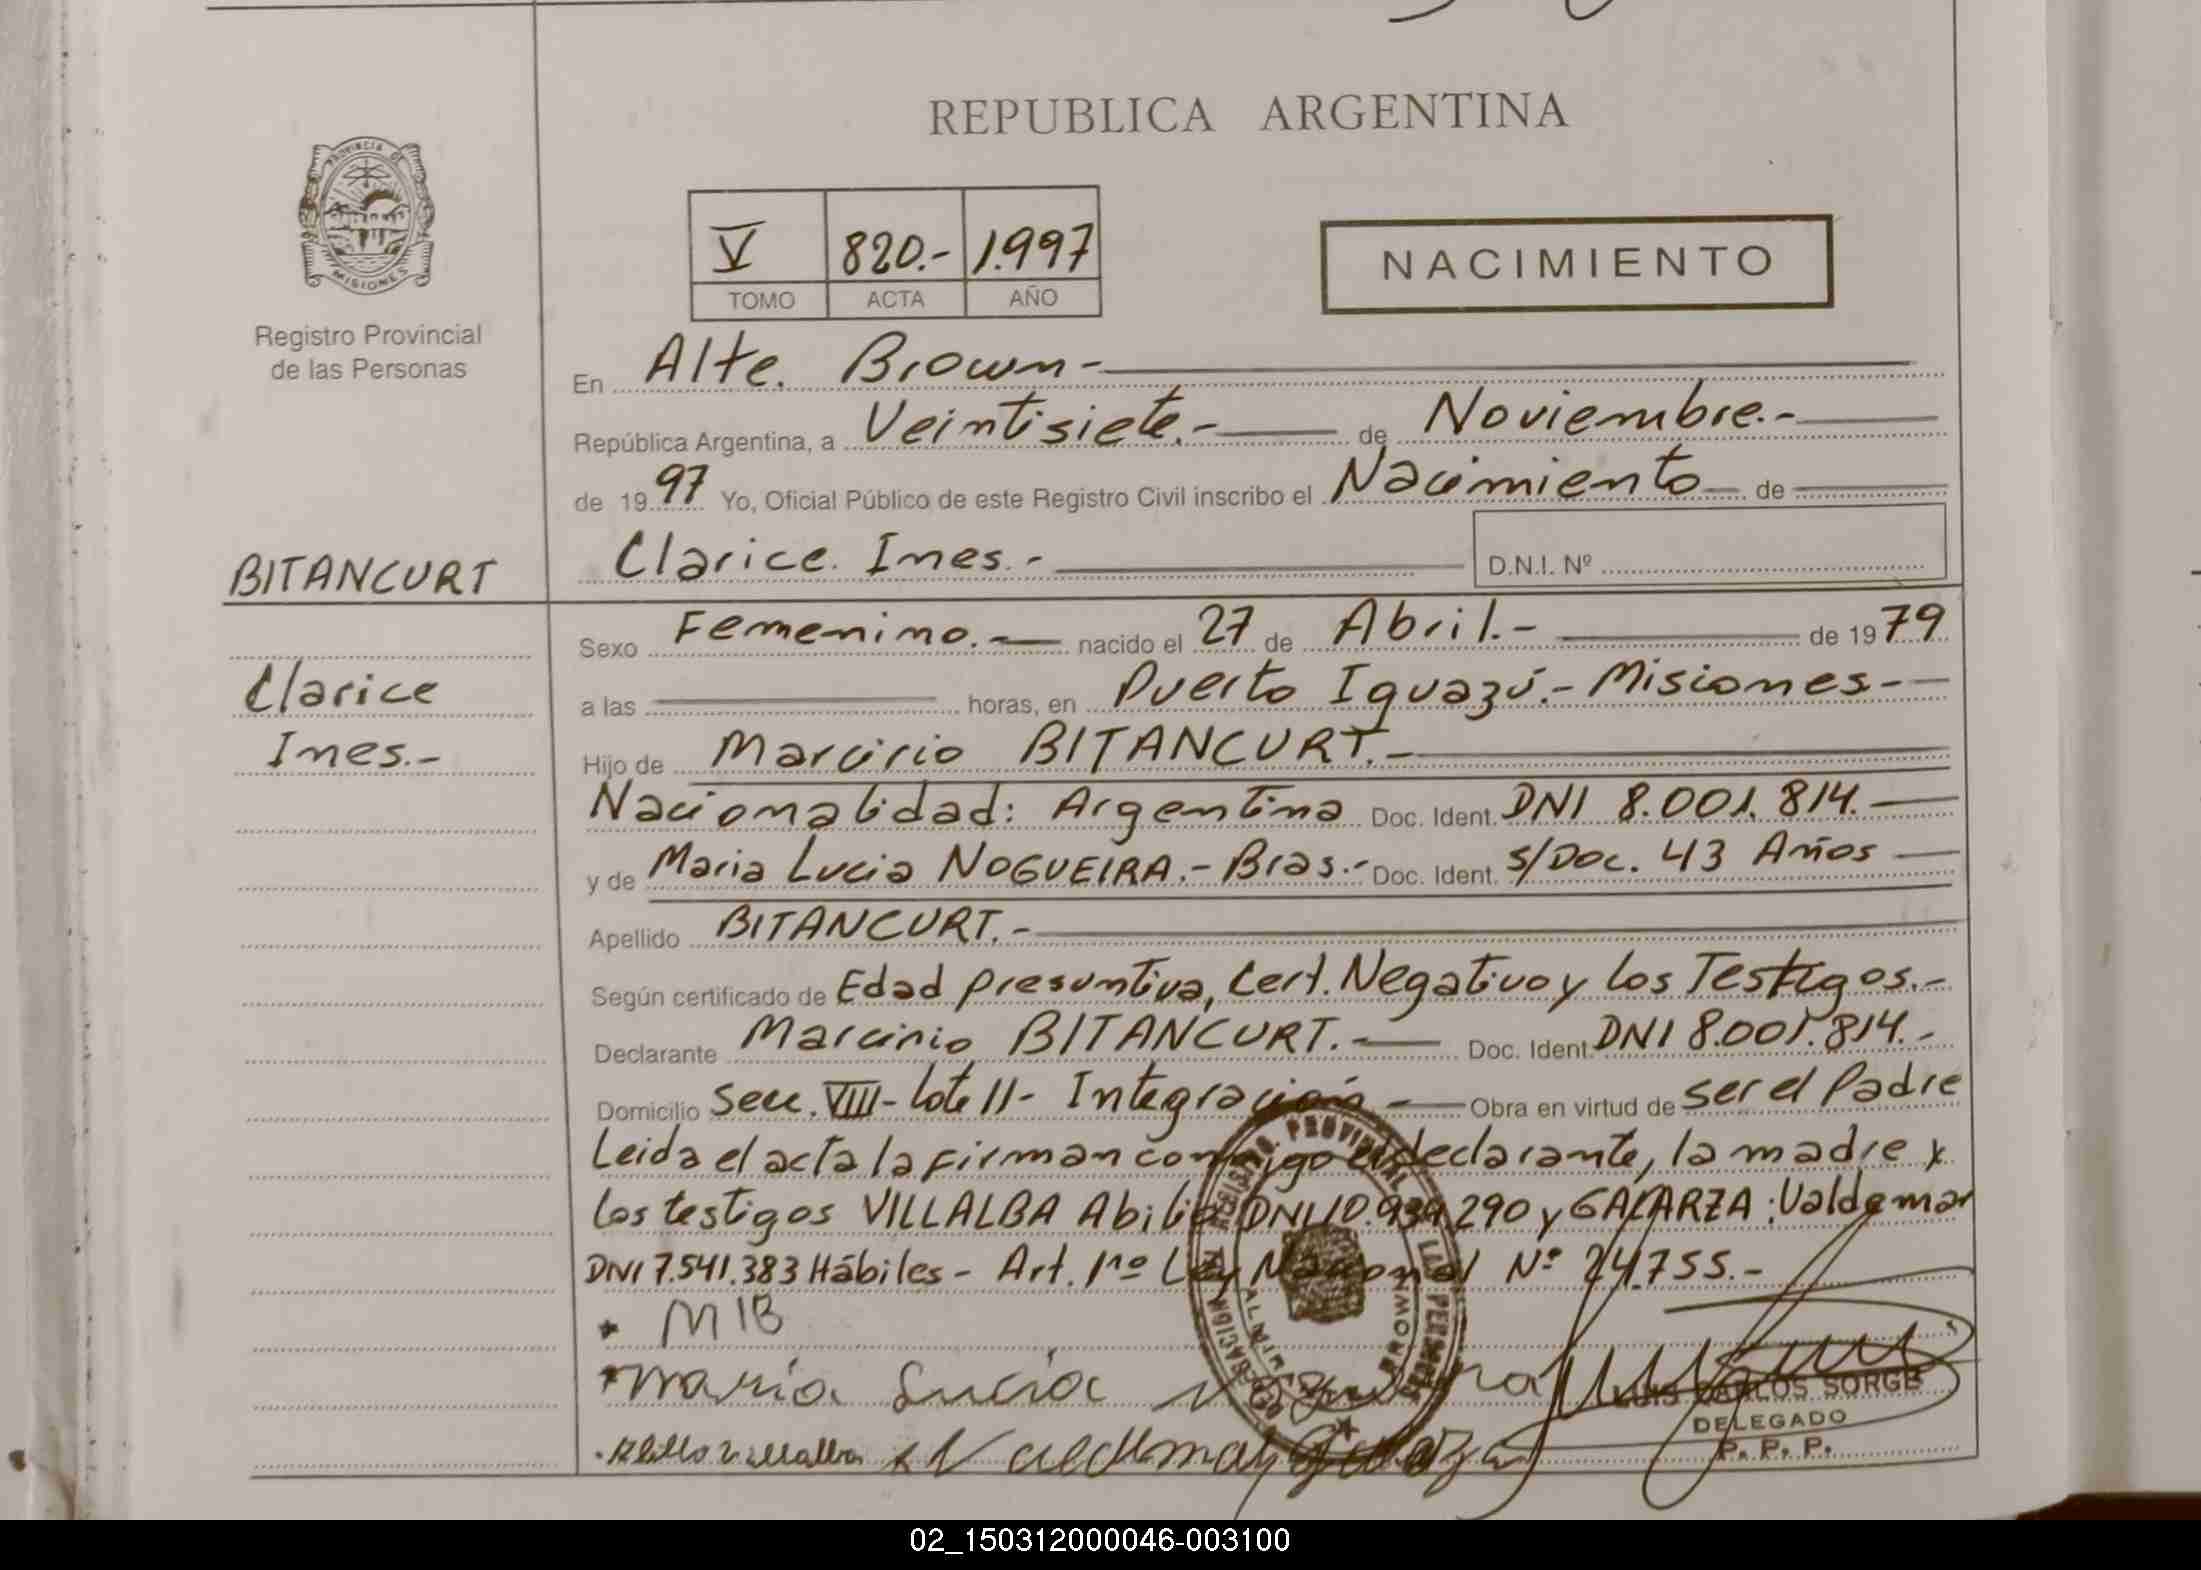 REPUBLICA ARGENTINA
PROVINCIA DE MISIONES
Registro Provincial
de las Personas
V 820.- 1.997
TOMO ACTA AÑO
NACIMIENTO
En Alte. Brown-
República Argentina, a Veintisiete.- de Noviembre.-
de 1997 Yo, Oficial Público de este Registro Civil inscribo el Nacimiento de
BITANCURT
Clarice. Ines.- D.N.I. Nº
Clarice
Ines.-
Sexo Femenino.- nacido el 27 de Abril.- de 1979
a las horas, en Puerto Iguazú.- Misiones-
Hijo de Marcirio BITANCURT.-
Nacionalidad: Argentina Doc. Ident. DNI 8.001.814.-
y de Maria Lucia NOGUEIRA.- Bras.- Doc. Ident. S/Doc. 43 Años
Apellido BITANCURT.-
Según certificado de Edad presuntiva, Cert. Negativo y los Testigos.-
Declarante Marcirio BITANCURT.- Doc. Ident. DNI 8.001.814.-
Domicilio Secc. VIII- lote 11- Integración - Obra en virtud de ser el Padre
Leida el acta la firman conmigo el declarante, la madre y
los testigos VILLALBA Abilio DNI 10.939.290 y GALARZA: Valdemar
DNI 7.541.383 Hábiles - Art. 1º Ley Nacional Nº 24.755.-
MIB
Maria Lucia
Villalba Valdemar Galarza
REGISTRO PROVINCIAL DE LAS PERSONAS
DELEGACION ALMIRANTE BROWN
LUIS CARLOS SORGE
DELEGADO
P. P. P.
02_150312000046-003100